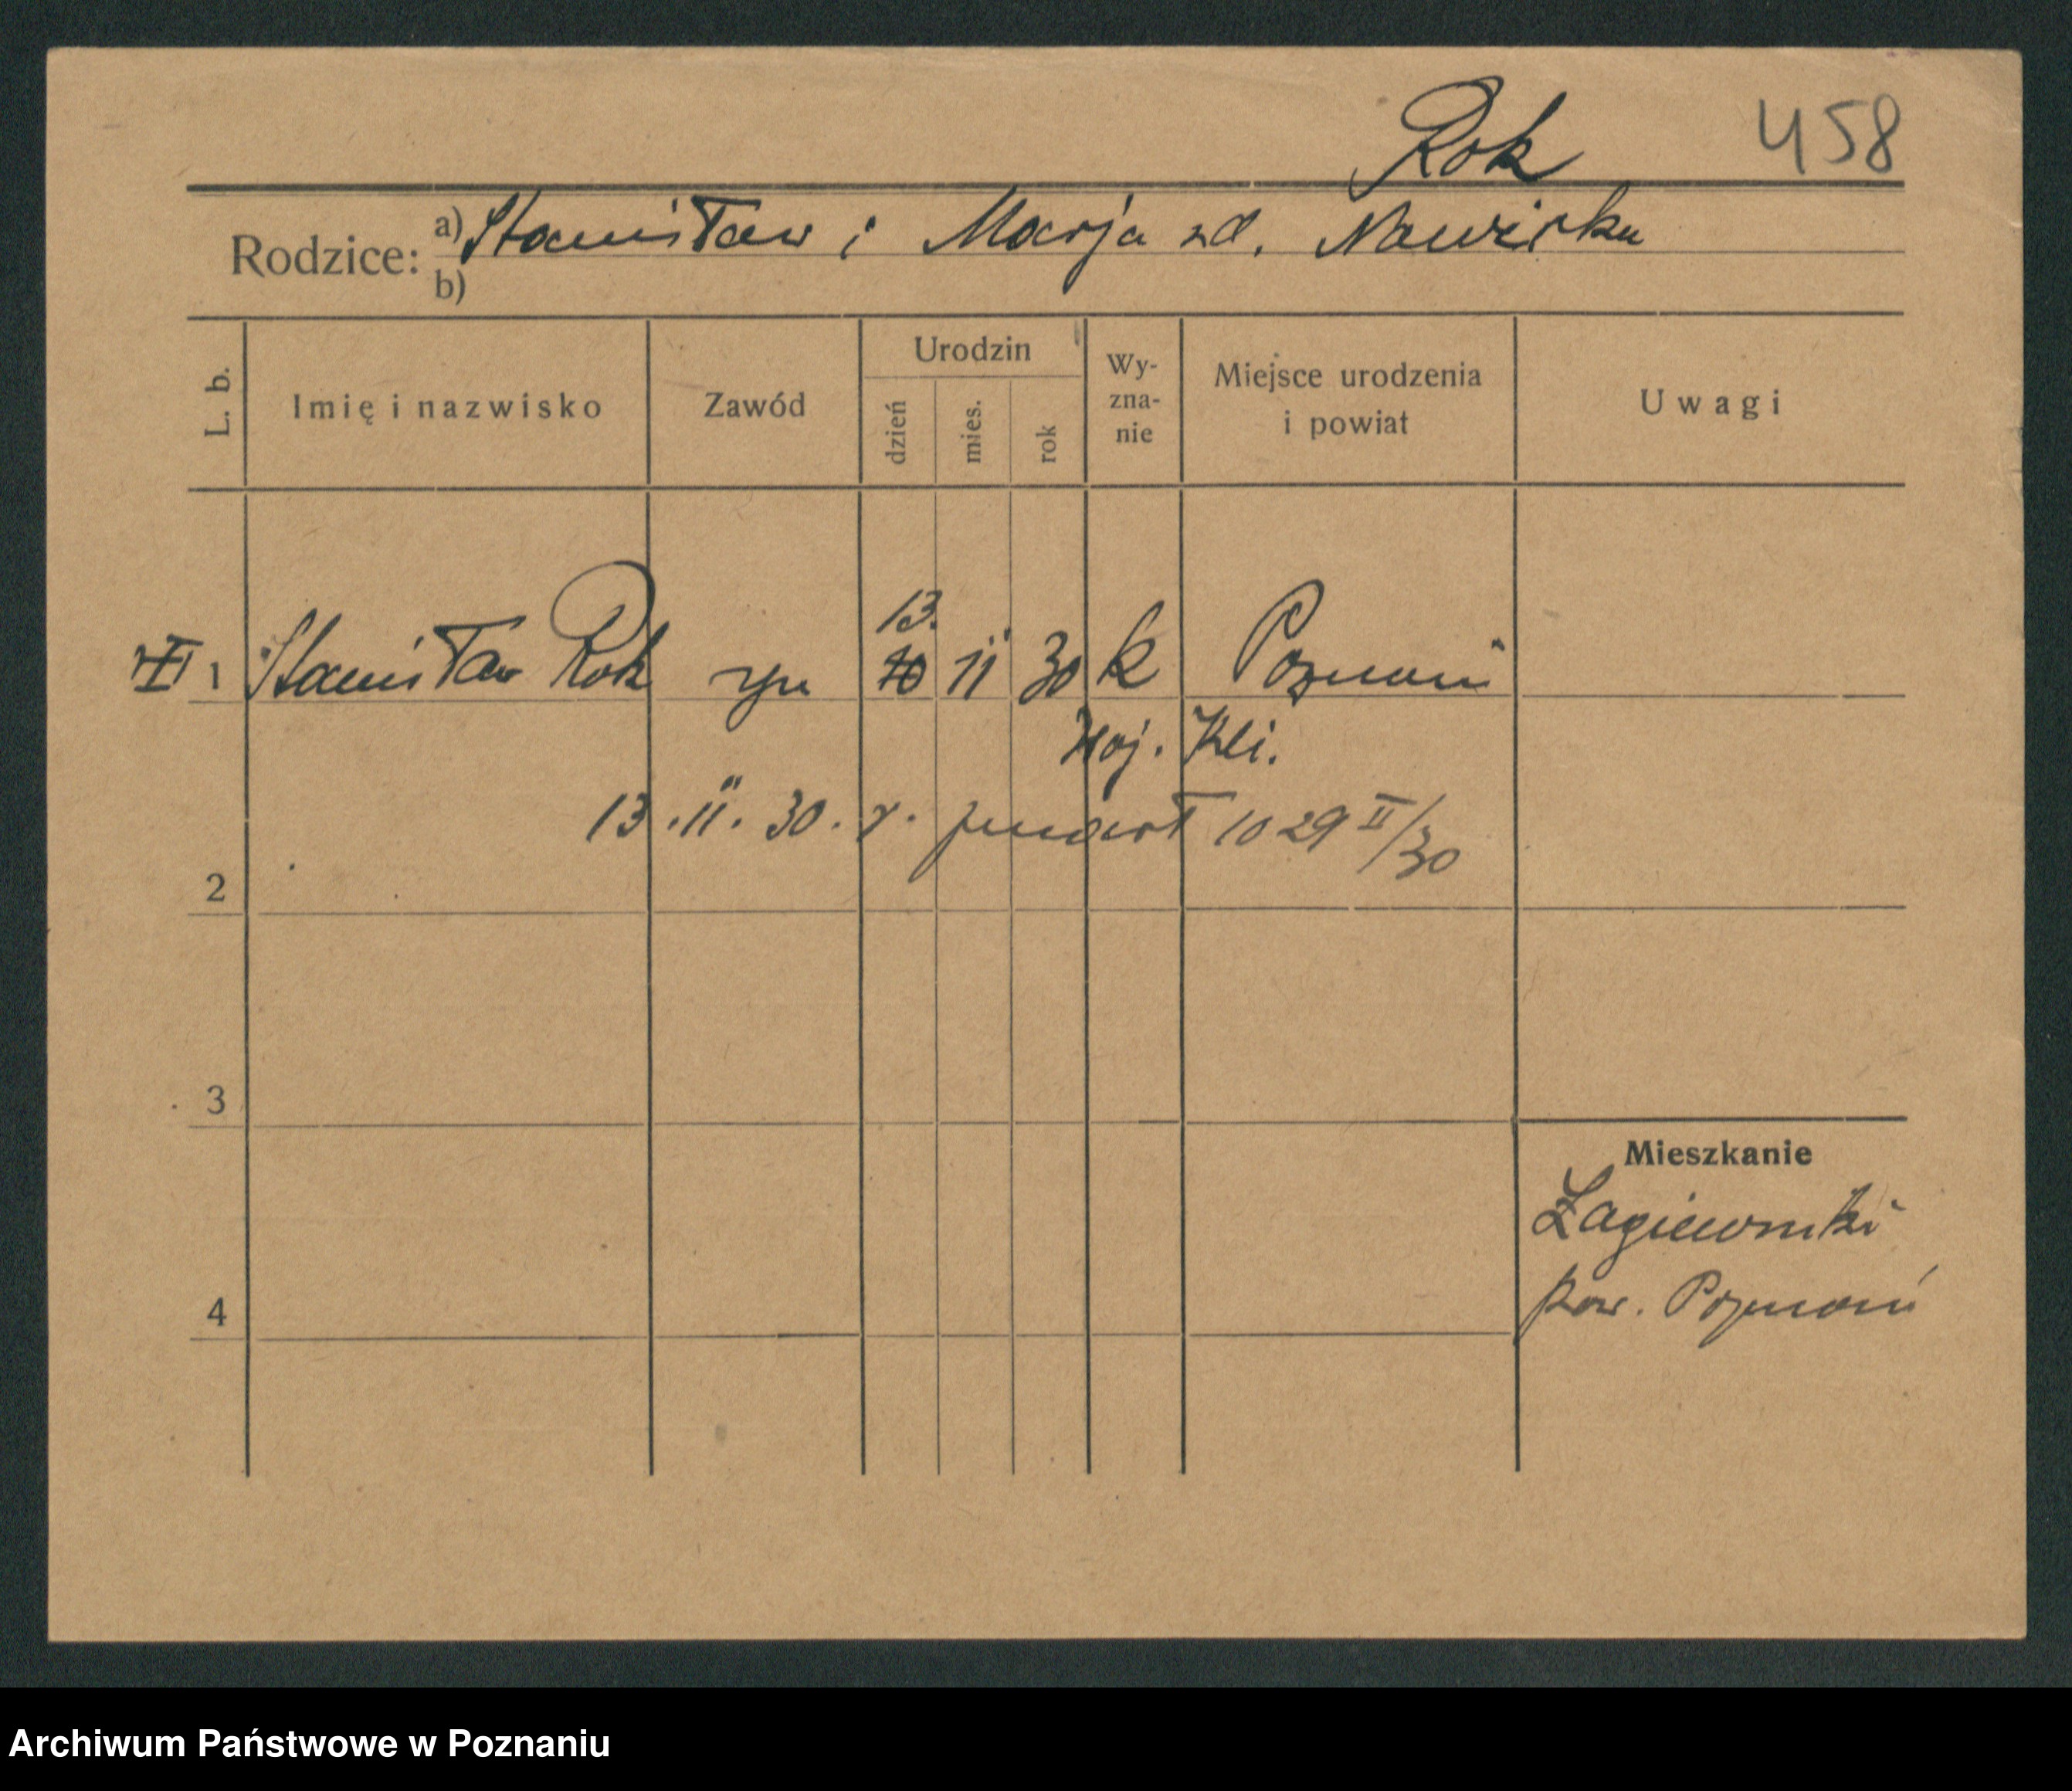 Rok 458
Rodzice: a) Stanisław i Marja zd. Nawirka
b)
L. b. Imię i nazwisko Zawód Urodzin dzień mies. rok Wy-zna-nie Miejsce urodzenia i powiat Uwagi
13.
1 Stanisław Rok syn 10 11 30 k Poznań
Woj. Kli.
13. 11. 30. r. zmarł 1029 II/30
2
3
Mieszkanie
Łagiewniki
4 pow. Poznań
Archiwum Państwowe w Poznaniu